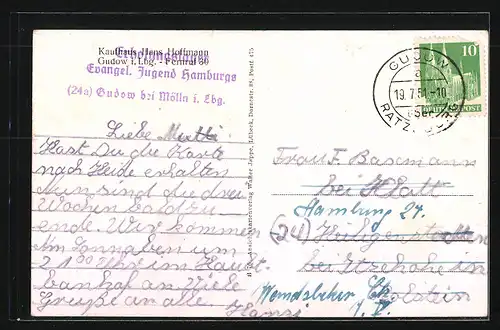 Kaufhaus Hans Hoffmann
Gudow i. Lbg. - Fernruf 60
Erholungslager
Evangel. Jugend Hamburgs
(24a) Gudow bei Mölln i. Lbg.
GUDOW
a
19.7.51.-10
RATZ
10
DEUTSCHE POST
Liebe Mutti!
Hast Du die Karte
nach Heide erhalten
Nun sind die drei
Wochen bald zu
ende. Wir kommen
Am Sonnabend um
21 00 Uhr im Haupt-
bahnhof an Viele
Grüße an alle
Hansi
Frau F. Basmann
bei
Hamburg 24.
(24) Heiligenstedten
bei Itzehohe in
Holstein
Wandsbeker Ch.